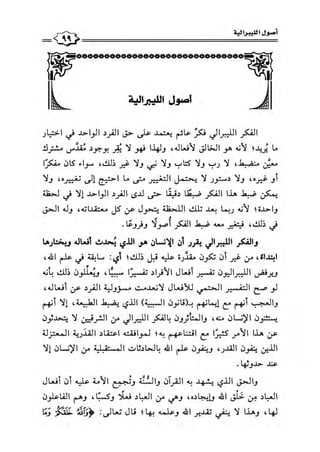 أصول الليبرالية
٩٩
أصول الليبرالية
الفكر الليبرالي فكرٌ عائم يعتمد على حق الفرد الواحد في اختيار
ما يُريد؛ لأنه هو الخالق لأفعاله، ولهذا فهو لا يُقِر بوجود مُقدَّس مشترك
معيَّن منضبط، لا رب ولا كتاب ولا نبي ولا غير ذلك، سواء كان مفكرًا
أو غيره، ولا دستور لا يحتمل التغيير متى ما احتيج إلى تغييره، ولا
يمكن ضبط هذا الفكر ضبطًا دقيقًا حتى لدى الفرد الواحد إلا في لحظة
واحدة؛ لأنه ربما بعد تلك اللحظة يتحول عن كل معتقداته، وله الحق
في ذلك، فيتغير معه ضبط الفكر أصولًا وفروعًا.
والفكر الليبرالي يقرر أن الإنسان هو الذي يُحدث أفعاله ويختارها
ابتداءً، من غير أن تكون مقدَّرة عليه قبل ذلك؛ أي: سابقة في علم الله،
ويرفض الليبراليون تفسير أفعال الأفراد تفسيرًا سببيًّا، ويُعلِّلون ذلك بأنه
لو صح التفسير الحتمي للأفعال لانعدمت مسؤولية الفرد عن أفعاله،
والعجب أنهم مع إيمانهم بـ(قانون السببية) الذي يضبط الطبيعة، إلا أنهم
يستثنون الإنسان منه، والمتأثرون بالفكر الليبرالي من الشرقيين لا يتحدثون
عن هذا الأمر كثيرًا مع اقتناعهم به؛ لموافقته اعتقاد القدَرية المعتزلة
الذين ينفون القدر، وينفون علم الله بالحادثات المستقبلية من الإنسان إلا
عند حدوثها.
والحق الذي يشهد به القرآن والسُّنَّة وتُجمع الأمة عليه أن أفعال
العباد مِن خَلْق الله وإيجاده، وهي من العباد فعلًا وكسبًا، وهم الفاعلون
لها، وهذا لا ينفي تقدير الله وعلمه بها؛ قال تعالى: ﴿وَاللَّهُ خَلَقَكُمْ وَمَا